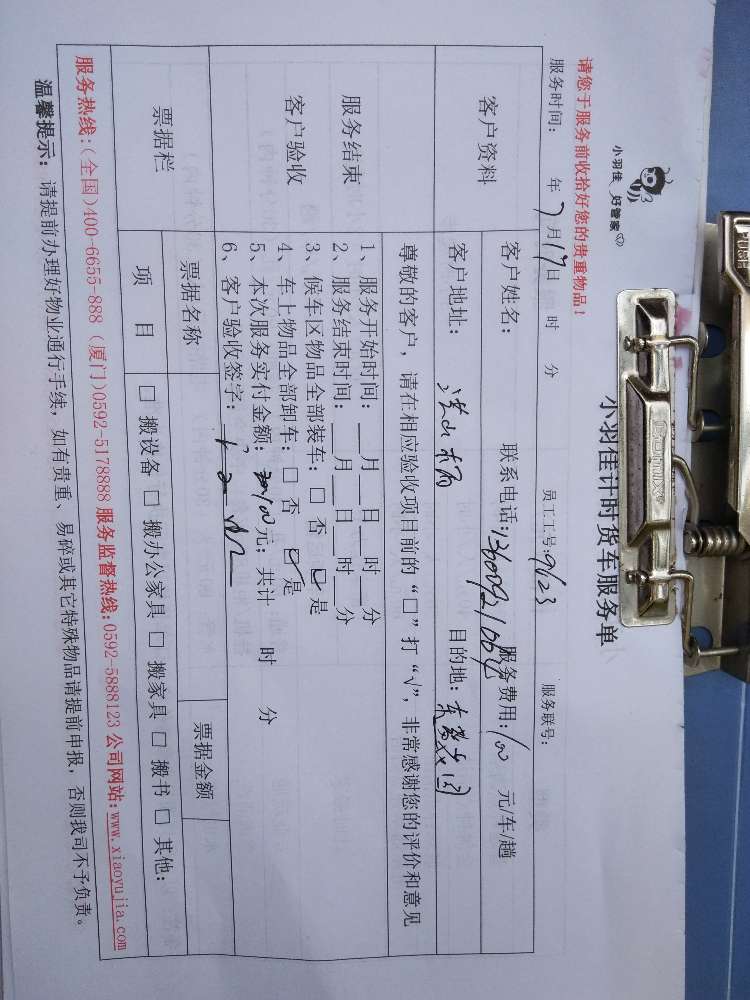 小羽佳 好管家
小羽佳计时货车服务单
请您于服务前收拾好您的贵重物品!
服务时间: 年 7月17日 时 分 员工工号:9123 服务联号:
客户资料 客户姓名: 联系电话: 服务费用:100 元/车/趟
客户地址: 目的地:
服务结束 客户验收
尊敬的客户, 请在相应验收项目前的“□”打“√”, 非常感谢您的评价和意见
1、服务开始时间:__月__日__时__分
2、服务结束时间:__月__日__时__分
3、候车区物品全部装车: □ 否 □是
4、车上物品全部卸车: □ 否 □是
5、本次服务实付金额: 100元; 共计 时 分
6、客户验收签字:
票据栏 票据名称 票据金额
项 目 □ 搬设备 □ 搬办公家具 □ 搬家具 □ 搬书 □ 其他:
服务热线:(全国)400-6655-888 (厦门)0592-5178888 服务监督热线:0592-5888123 公司网站:www.xiaoyujia.com
温馨提示: 请提前办理好物业通行手续, 如有贵重、易碎或其它特殊物品请提前申报, 否则我司不予负责。
PUSH